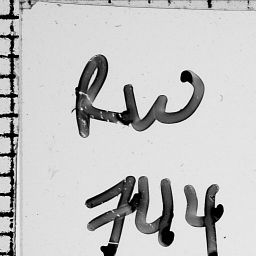 RW
744